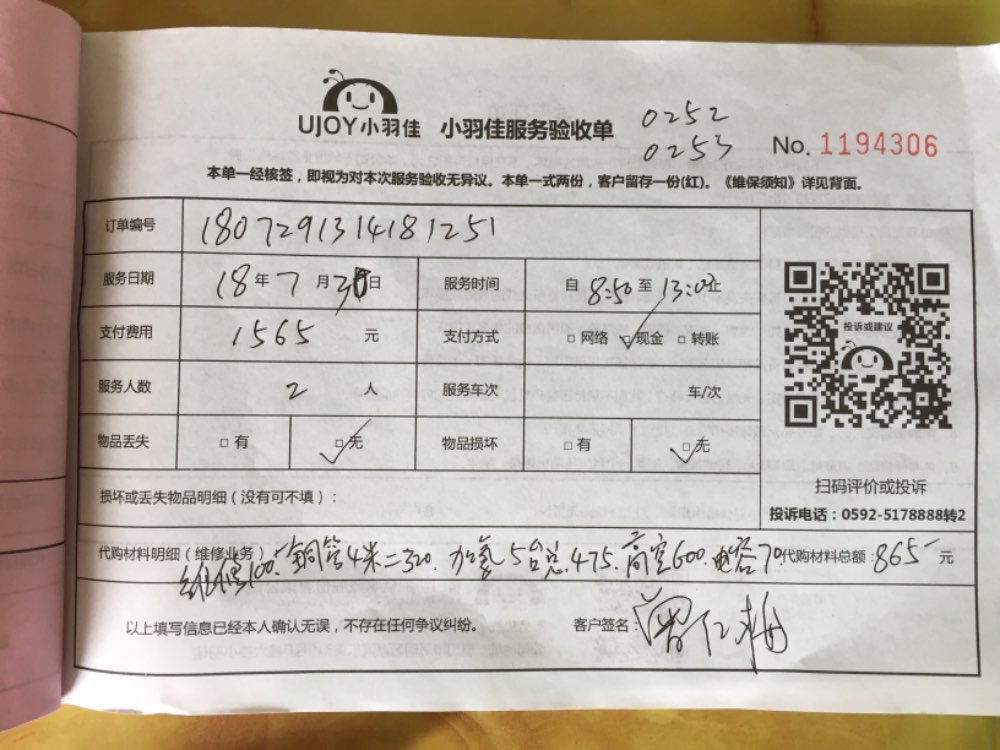 UJOY小羽佳 小羽佳服务验收单
0252
0253
No. 1194306
本单一经核签，即视为对本次服务验收无异议。本单一式两份，客户留存一份(红)。《维保须知》详见背面。
订单编号 1807291314181251
服务日期 18 年 7 月 30 日 服务时间 自 8:50 至 13:00 止
支付费用 1565 元 支付方式 □ 网络 □ 现金 □ 转账
服务人数 2 人 服务车次 车/次
物品丢失 □ 有 □ 无 物品损坏 □ 有 □ 无
损坏或丢失物品明细（没有可不填）：
投诉或建议
扫码评价或投诉
投诉电话：0592-5178888转2
代购材料明细（维修业务） 銅管4米=320. 加氢5台总475. 高空600. 电容70 代购材料总额：865 元
维修100.
以上填写信息已经本人确认无误，不存在任何争议纠纷。 客户签名：